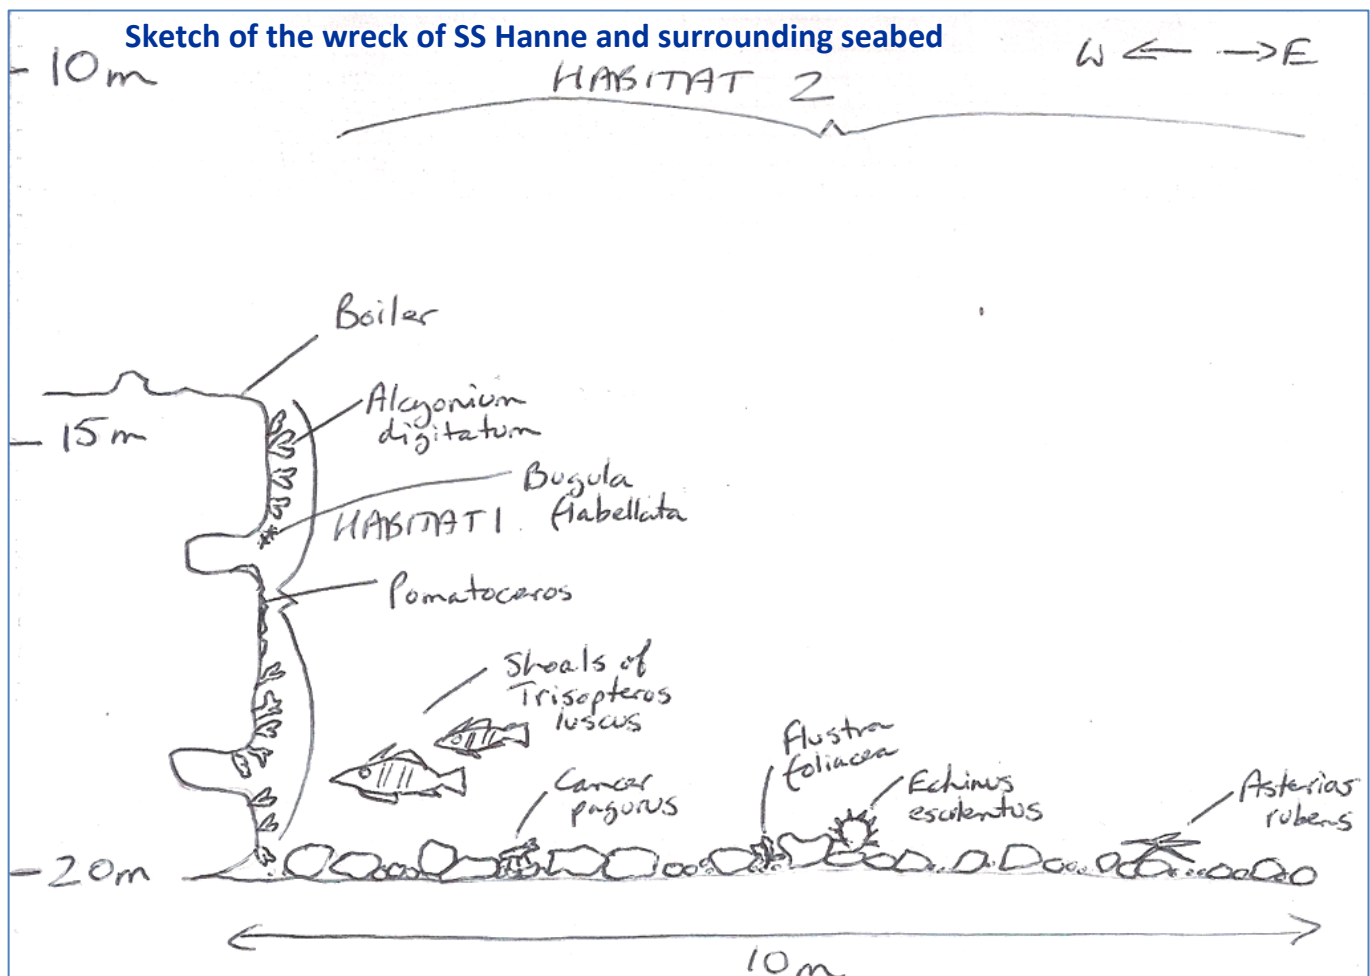 Sketch of the wreck of SS Hanne and surrounding seabed
W ← → E
10m
HABITAT 2
Boiler
Alcyonium
digitatum
15m
Bugula
flabellata
HABITAT 1
Pomatoceros
Shoals of
Trisopteros
luscus
Flustra
foliacea
Cancer
pagurus
Echinus
esculentus
Asterias
rubens
20m
10m